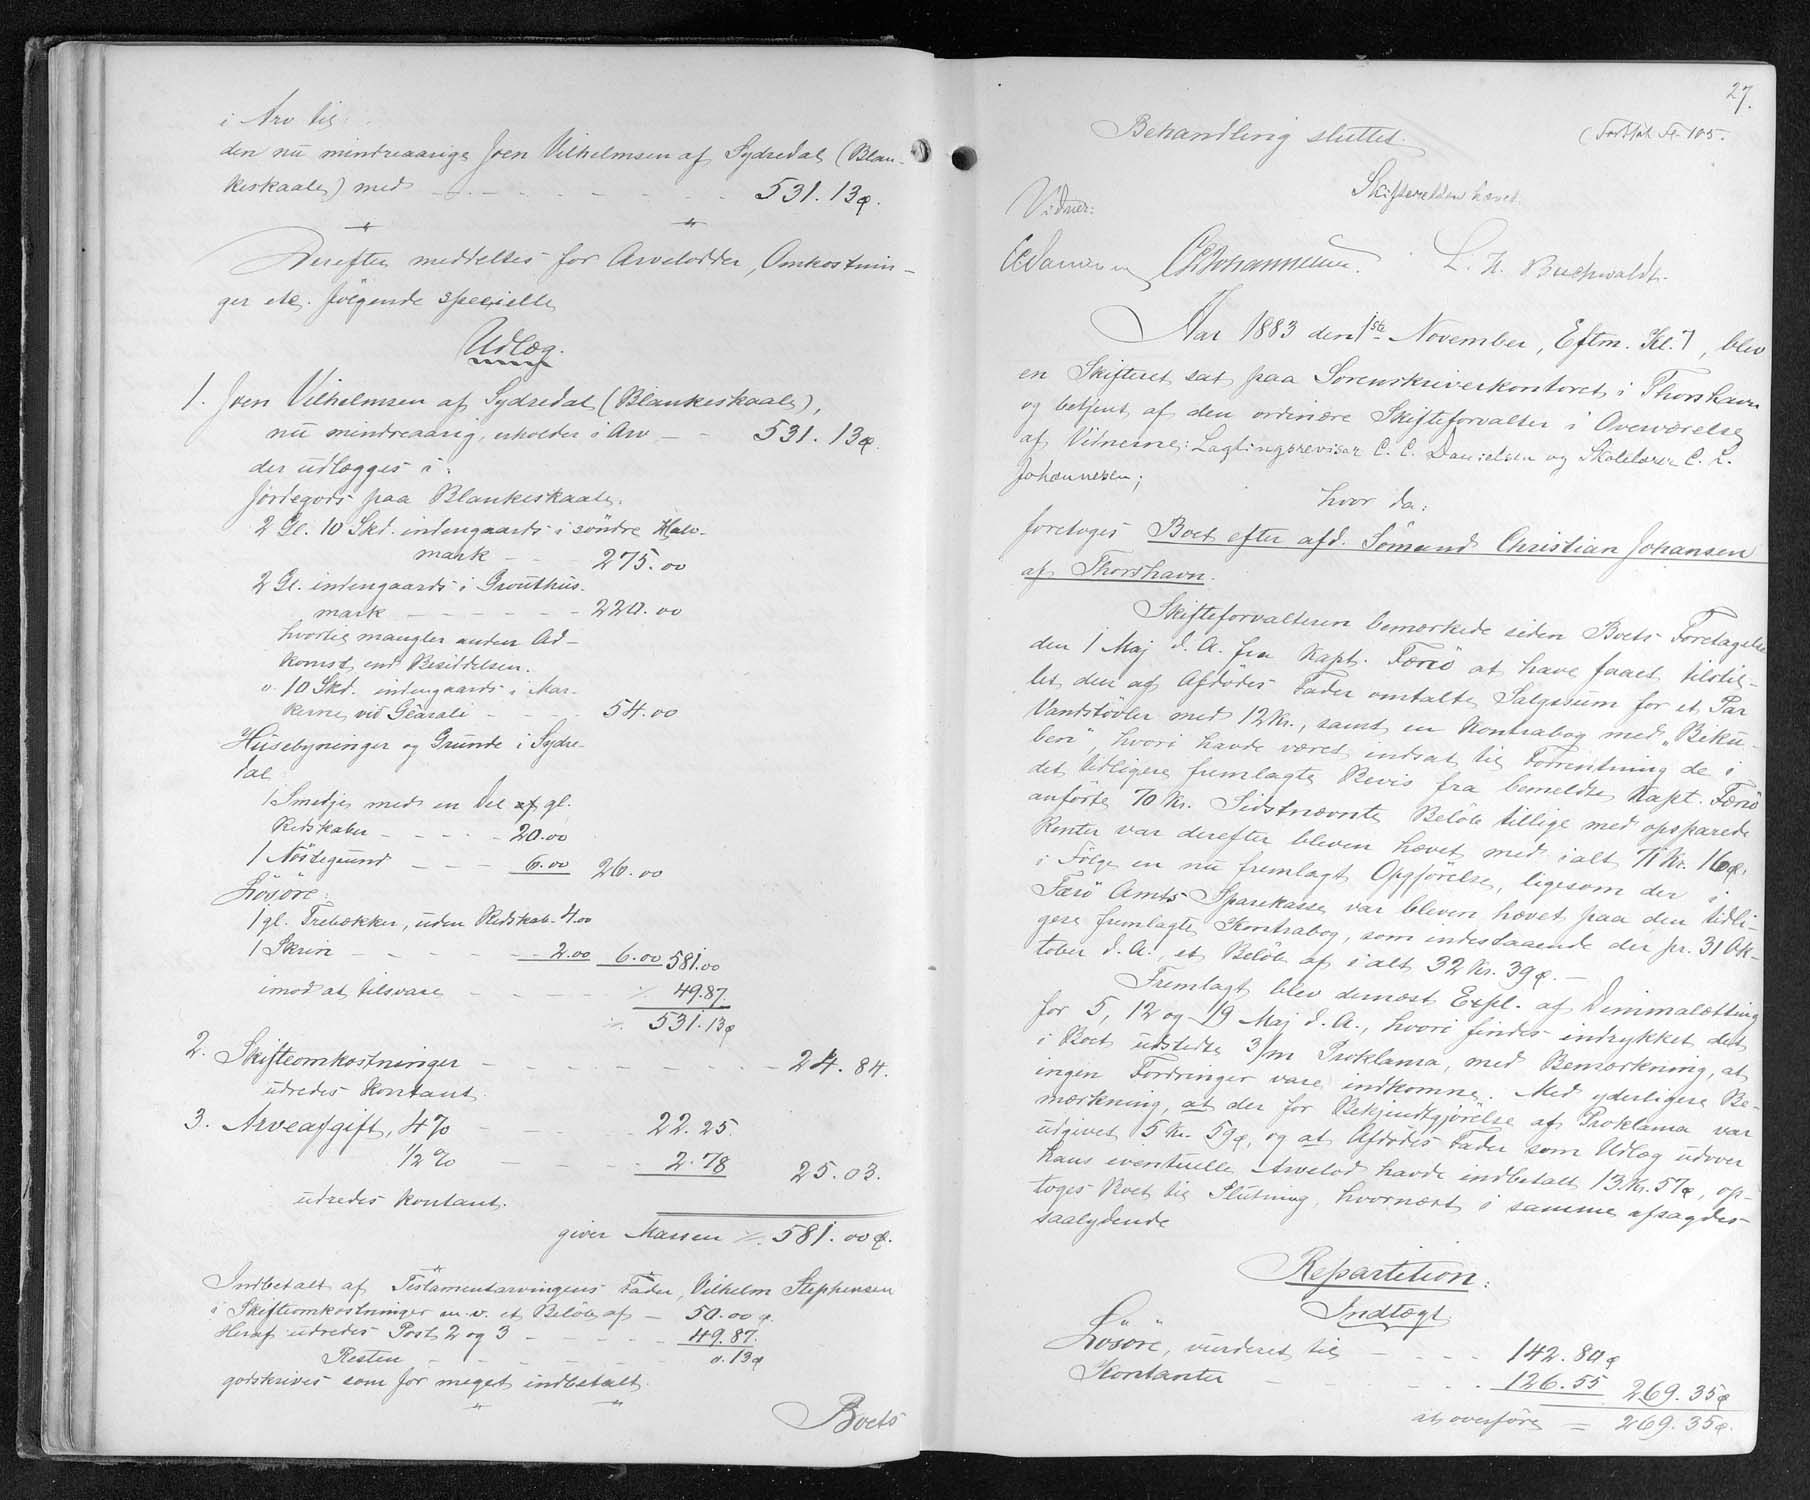 i Arv til
den nu mindreaarige Joen Vilhelmsen af Sydredal (Blan-
keskaale) med - - - - - - 531.13ø.
Derefter meddeltes for Arvelodder, Omkostnin-
ger etc. følgende specielle
Udlæg.
1. Joen Vilhelmsen af Sydredal (Blankeskaale),
nu mindreaarig, erholder i Arv - - 531.13ø.
der udlægges i:
Jordegods paa Blankeskaale:
2 Gl. 10 Skd. indengaards i söndre Halv-
mark - - 275.00
2 Gl. indengaards i Grouthus-
mark - - - - - 220.00
hvortil mangler anden Ad-
komst end Besiddelsen.
o. 10 Skd. indengaards i Mar-
kerne vid - - - 54.00
Husebygninger og Grunde i Sydre-
dal
1 Smedje med en Del af gl.
Redskaber - - - - 20.00
1 Nöstegrund - - - 6.00 26.00
Lösöre:
1 gl. Trebækker, uden Redskab. 4.00
1 Skrin - - - - - 2.00 6.00 581.00
imod at tilsvare - - - - ./. 49.87.
./. 531.13ø
2. Skifteomkostninger - - - - - - - - 24.84.
udredes kontant.
3. Arveafgift, 4% - - - - 22.25.
1/2% - - - - 2.78 25.03.
udredes kontant.
giver Massen ./. 581.00ø.
Indbetalt af Testamentarvingens Fader, Vilhelm Stephensen
i Skifteomkostninger m.v. et Beløb af - 50.00ø.
Heraf udredes Post 2 og 3 - - - - 49.87.
Resten - - - - - - 0.13ø
godskrives som for meget indbetalt.
Boets
27.
Behandling sluttet. (Fortsat Fol. 105.
Skifteretten hævet.
Vidner:
CCDanielsen CLJohannesen. L. H. Buchwaldt.
Aar 1883 den 1ste November, Eftm. Kl. 7, blev
en Skifteret sat paa Sorenskriverkontoret i Thorshavn
og betjent af den ordinære Skifteforvalter i Overværelse
af Vidnerne: Lagtingsrevisor C. C. Danielsen og Skolelærer C. L.
Johannesen;
hvor da:
foretoges Boet efter afd. Sömund Christian Johansen
af Thorshavn.
Skifteforvalteren bemærkede siden Boets Foretagelse
den 1 Maj d. A. fra Kapt. Færö at have faaet tilstil-
let den af Afdödes Fader omtalte Salgssum for et Par
Vandstövler med 12 Kr., samt en Kontrabog med „Biku-
ben“, hvori havde været indsat til Forrentning de i
det tidligere fremlagte Bevis fra bemeldte Kapt. Færö
anførte 70 Kr. Sidstnævnte Beløb tillige med opsparede
Renter var derefter bleven hævet med ialt 71 Kr. 16ø.
i Følge en nu fremlagt Opgjörelse, ligesom der i
Færö Amts Sparekasse var bleven hævet paa den tidli-
gere fremlagte Kontrabog, som indestaaende der pr. 31 Ok-
tober d. A., et Beløb af ialt 32 Kr. 39ø. -
Fremlagt blev dernæst Expl. af Dimmalætting
for 5, 12 og 19 Maj d. A., hvori findes indrykket det
i Boet udstedte 3/m Proklama, med Bemærkning, at
ingen Fordringer vare indkomne. Med yderligere Be-
mærkning, at der for Bekjendtgjörelse af Proklama var
udgivet 5 Kr. 59ø, og at Afdödes Fader som Udlæg udover
hans eventuelle Arvelod havde indbetalt 13 Kr. 57ø, op-
toges Boet til Slutning, hvornæst i samme afsagdes
saalydende
Repartition:
Indtægt
Lösöre, vurderet til - - - - 142.80ø
Kontanter - - - - 126.55 269.35ø
at overføre = 269.35ø.